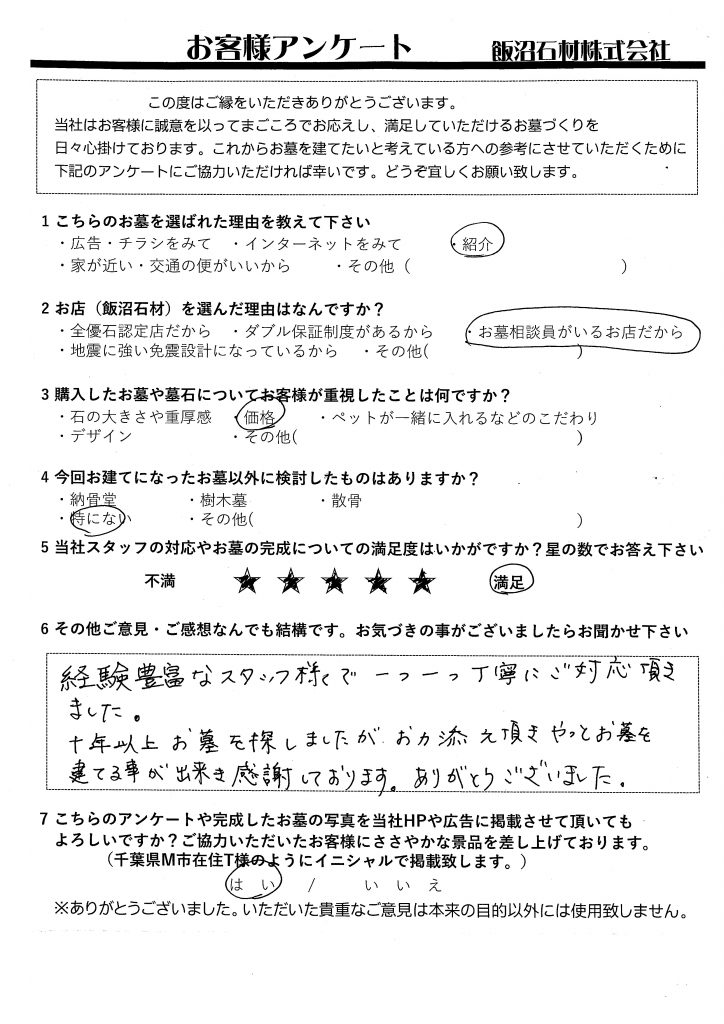 お客様アンケート 飯沼石材株式会社
この度はご縁をいただきありがとうございます。
当社はお客様に誠意を以ってまごころでお応えし、満足していただけるお墓づくりを
日々心掛けております。これからお墓を建てたいと考えている方への参考にさせていただくために
下記のアンケートにご協力いただければ幸いです。どうぞ宜しくお願い致します。
1 こちらのお墓を選ばれた理由を教えて下さい
・広告・チラシをみて ・インターネットをみて ・紹介
・家が近い・交通の便がいいから ・その他（ ）
2 お店（飯沼石材）を選んだ理由はなんですか？
・全優石認定店だから ・ダブル保証制度があるから ・お墓相談員がいるお店だから
・地震に強い免震設計になっているから ・その他( )
3 購入したお墓や墓石についてお客様が重視したことは何ですか？
・石の大きさや重厚感 ・価格 ・ペットが一緒に入れるなどのこだわり
・デザイン ・その他( )
4 今回お建てになったお墓以外に検討したものはありますか？
・納骨堂 ・樹木墓 ・散骨
・特にない ・その他( )
5 当社スタッフの対応やお墓の完成についての満足度はいかがですか？星の数でお答え下さい
不満 ★ ★ ★ ★ ★ 満足
6 その他ご意見・ご感想なんでも結構です。お気づきの事がございましたらお聞かせ下さい
経験豊富なスタッフ様々で一つ一つ丁寧にご対応頂き
ました。
十年以上お墓を探しましたがお力添え頂きやっとお墓を
建てる事が出来き感謝しております。ありがとうございました。
7 こちらのアンケートや完成したお墓の写真を当社HPや広告に掲載させて頂いても
よろしいですか？ご協力いただいたお客様にささやかな景品を差し上げております。
（千葉県M市在住T様のようにイニシャルで掲載致します。）
は い / い い え
※ありがとうございました。いただいた貴重なご意見は本来の目的以外には使用致しません。